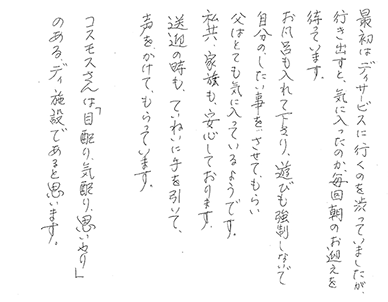 最初はディサービスに行くのを渋っていましたが、
行き出すと、気に入ったのか、毎回朝のお迎えを
待っています。
お風呂も入れて下さり、遊びも強制しないで
自分のしたい事を「させて」もらい
父はとても気に入っているようです。
私共、家族も、安心しております。
送迎の時も、ていねいに手を引いて、
声をかけて、もらっています。
コスモスさんは「目配り、気配り、思いやり」
のあるディ施設であると思います。